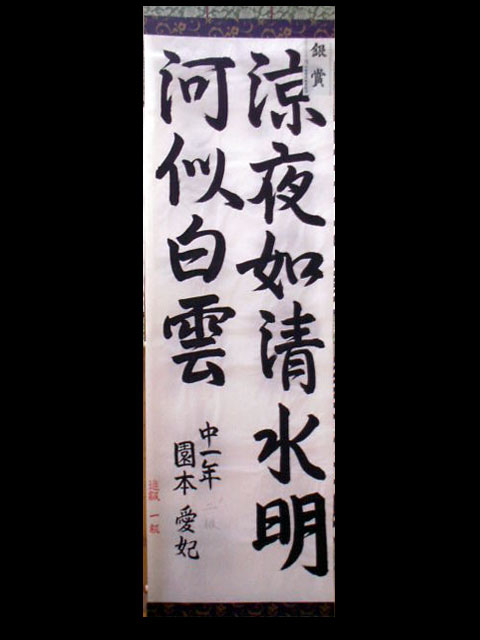 銀賞
涼夜如清水明
河似白雲
中一年
園本愛妃
二級
進級一級